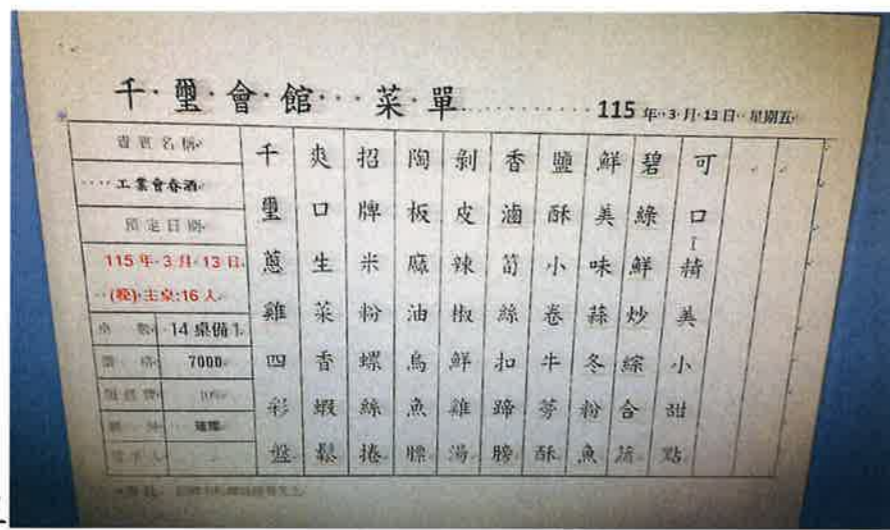 千璽會館 菜單 115年3月13日 星期五
貴賓名稱
工業會春酒
預定日期
115年3月13日
(晚)主桌:16人
桌 數 14桌備1
價 格 7000
服務費 10%
千璽蔥雞四彩盤
爽口生菜香蝦鬆
招牌米粉螺絲捲
陶板麻油烏魚膘
剝皮辣椒鮮雞湯
香滷筍絲扣蹄膀
鹽酥小卷牛蒡酥
鮮美味蒜冬粉魚
碧綠鮮炒綜合蔬
可口精美小甜點